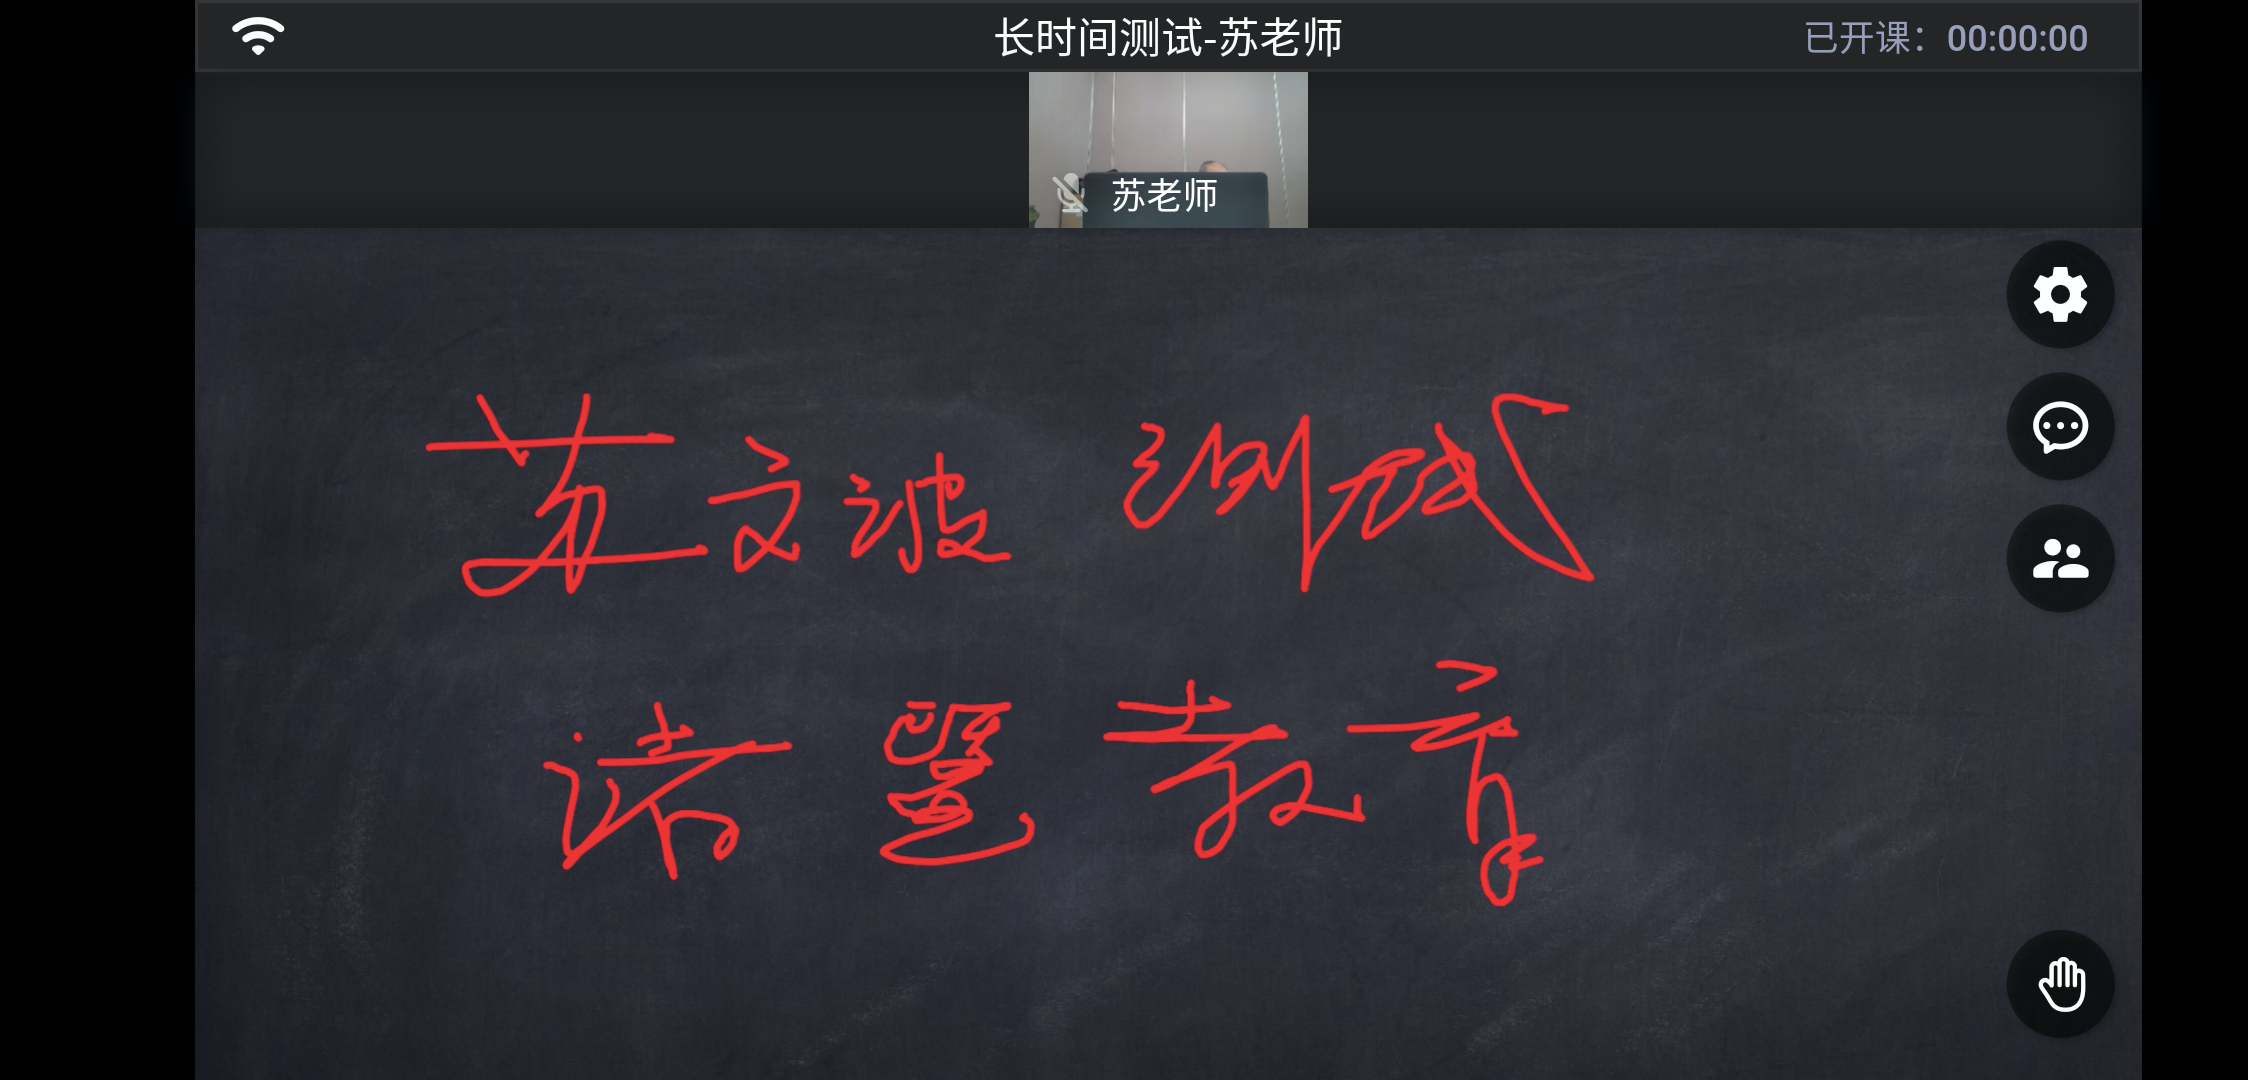 长时间测试-苏老师
已开课：00:00:00
苏老师
苏文波 测试
教育